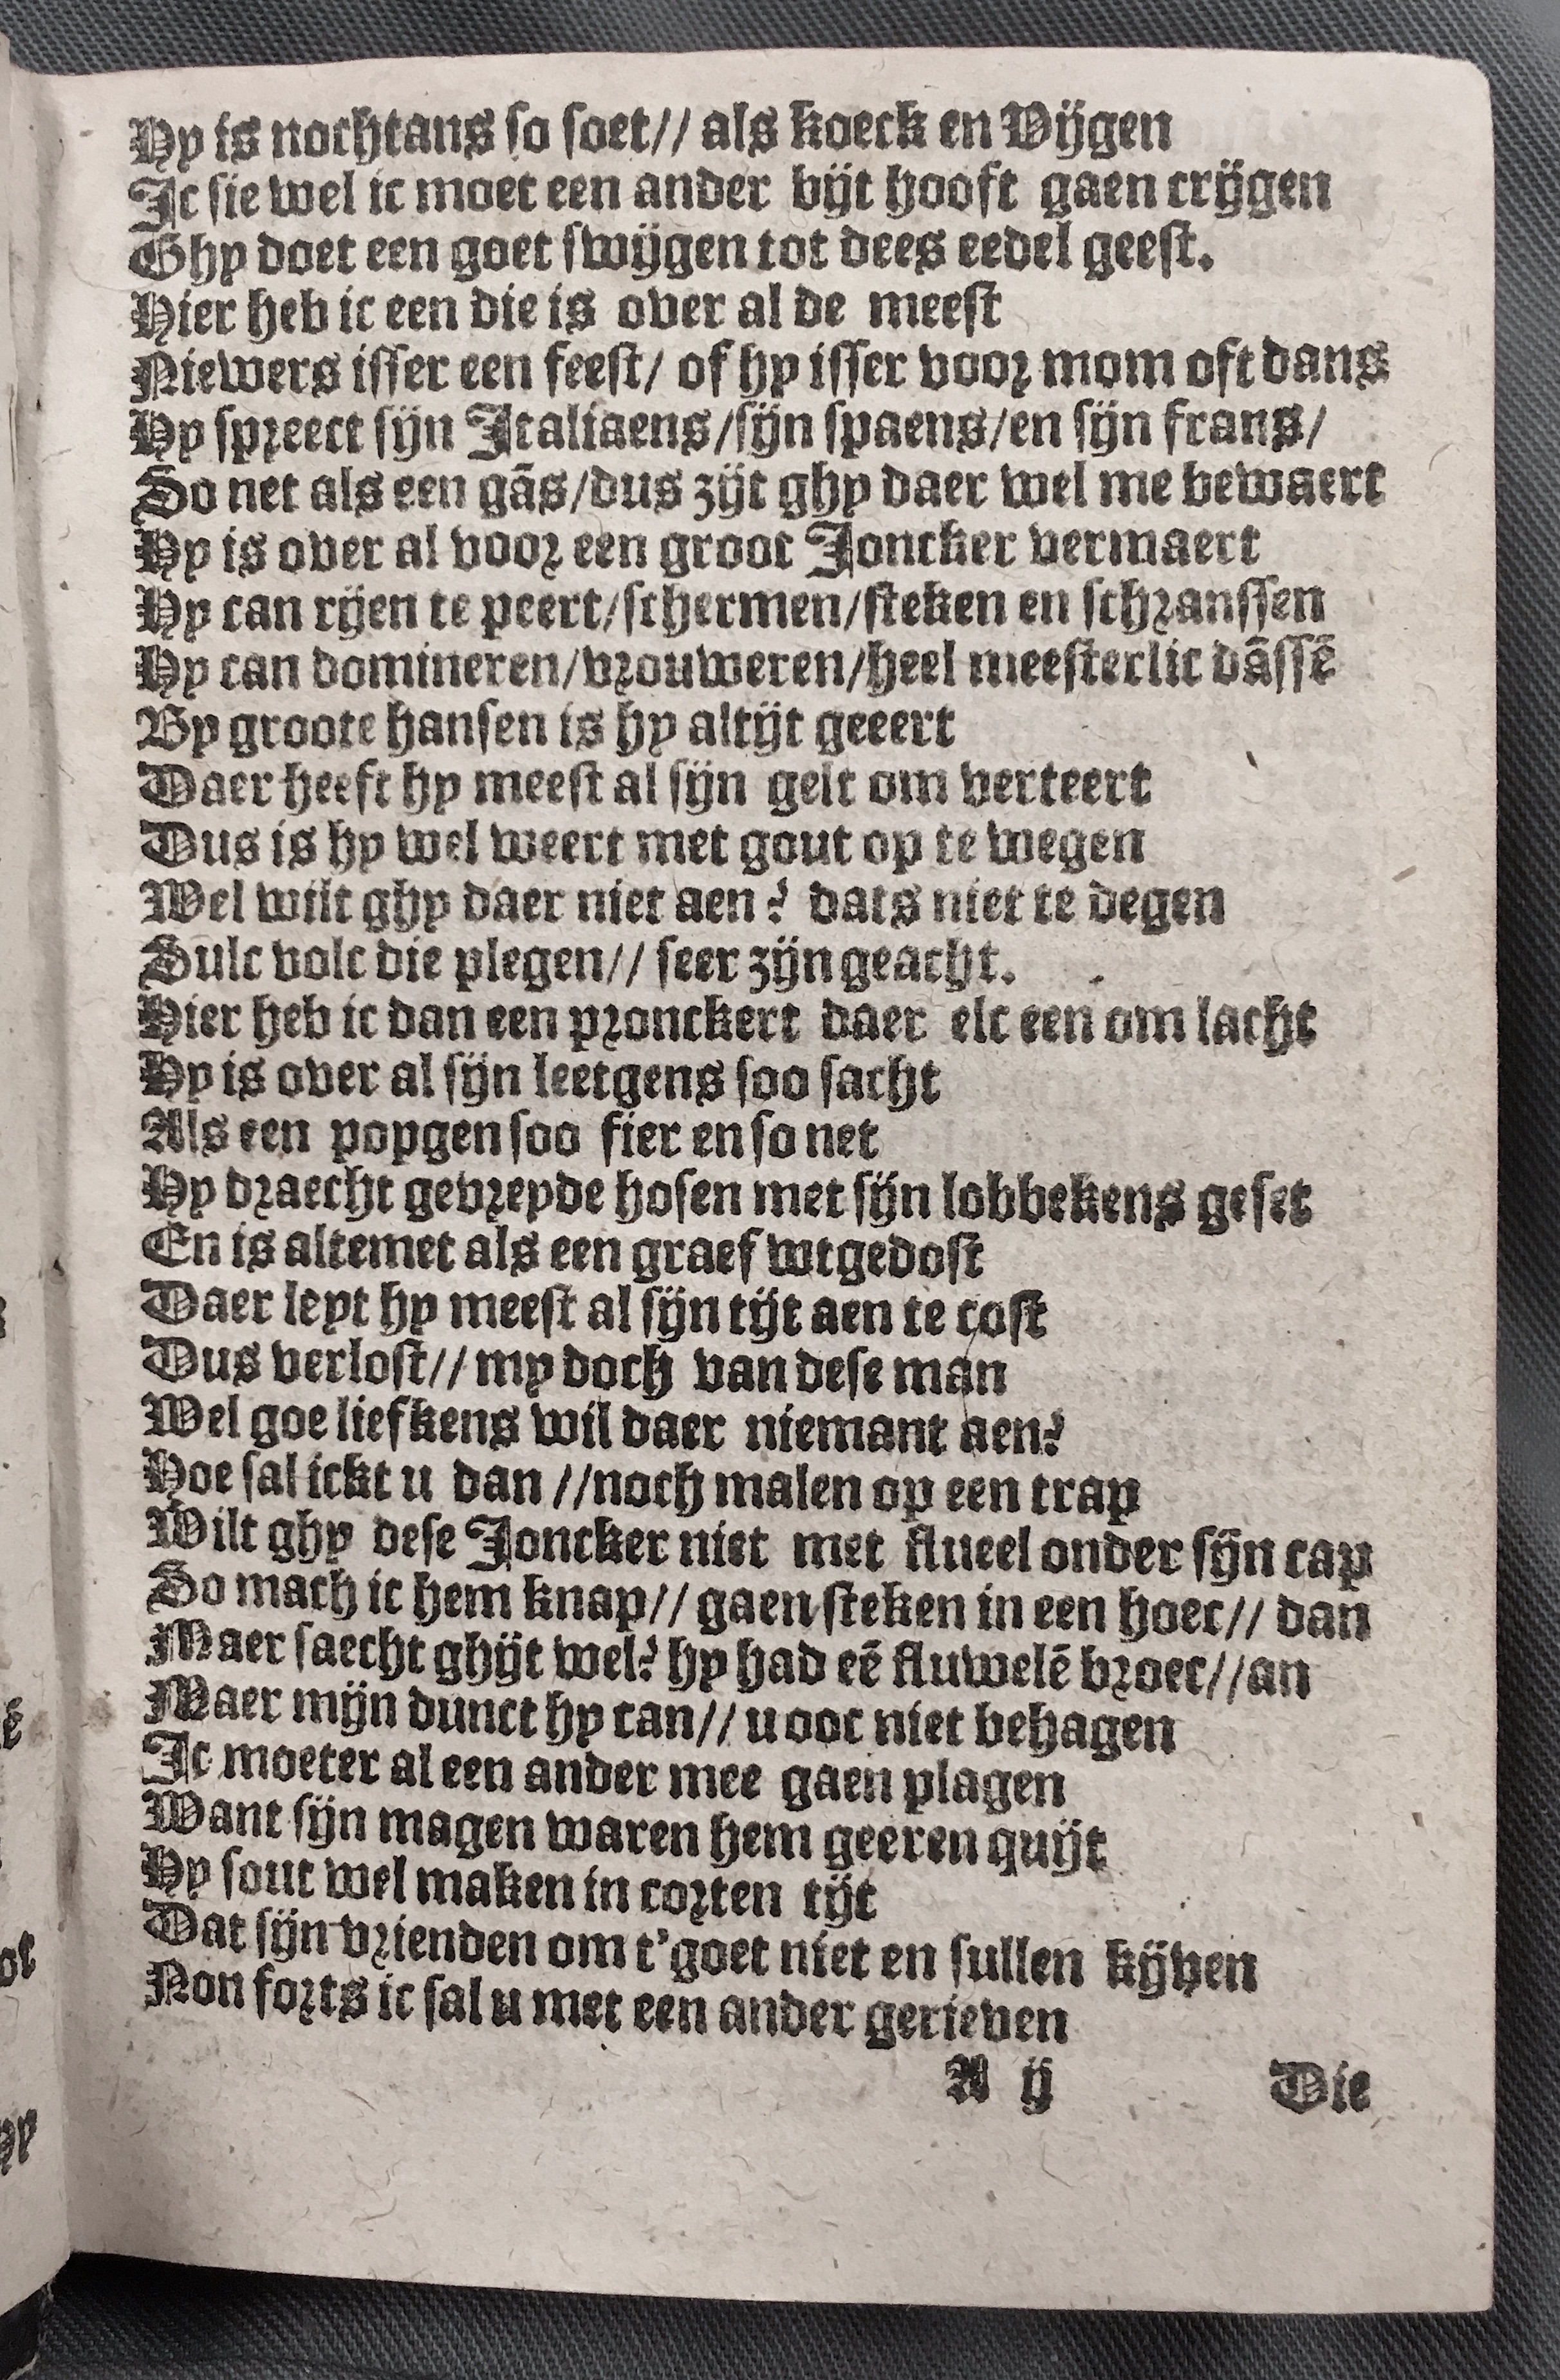 Hy is nochtans so soet// als koeck en Vijgen
Ic sie wel ic moet een ander bijt hooft gaen crijgen
Ghy doet een goet swijgen tot dees eedel geest.
Hier heb ic een die is over al de meest
Niewers isser een feest/ of hy isser voor mom oft dans
Hy spreect sijn Italiaens/sijn spaens/en sijn frans/
So net als een gãs/dus zijt ghy daer wel me bewaert
Hy is over al voor een groot Joncker vermaert
Hy can rijen te peert/schermen/steken en schranssen
Hy can domineren/vrouweren/heel meesterlic dãssẽ
By groote hansen is hy altijt geeert
Daer heeft hy meest al sijn gelt om verteert
Dus is hy wel weert met gout op te wegen
Wel wilt ghy daer niet aen? dats niet te degen
Sulc volc die plegen// seer zijn geacht.
Hier heb ic dan een pronckert daer elc een om lacht
Hy is over al sijn leetgens soo sacht
Als een popgen soo fier en so net
Hy draecht gebreyde hosen met sijn lobbekens geset
En is altemet als een graef wtgedost
Daer leyt hy meest al sijn tijt aen te cost
Dus verlost// my doch van dese man
Wel goe liefkens wil daer niemant aen?
Hoe sal ickt u dan //noch malen op een trap
Wilt ghy dese Joncker niet met flueel onder sijn cap
So mach ic hem knap// gaen steken in een hoec// dan
Maer saecht ghijt wel? hy had eẽ fluwelẽ broec//an
Maer mijn dunct hy can// u ooc niet behagen
Ic moeter al een ander mee gaen plagen
Want sijn magen waren hem geeren quijt
Hy sout wel maken in corten tijt
Dat sijn vrienden om t'goet niet en sullen kijven
Non forts ic sal u met een ander gerieven
A ij Die